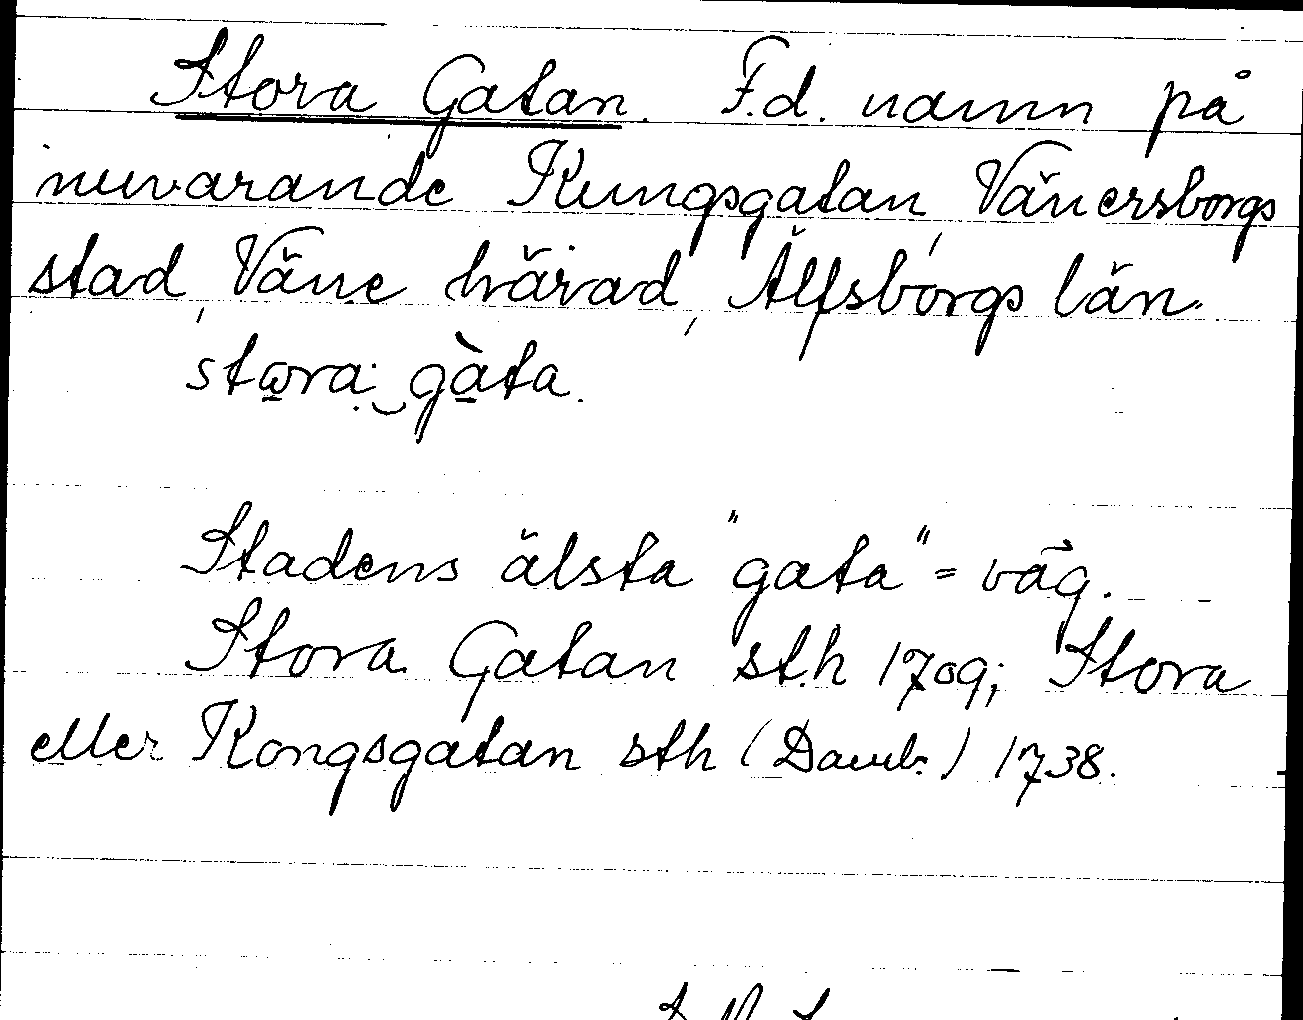 Stora Gatan. F.d. namn på
nuvarande Kungsgatan, Vänersborgs
stad, Väne härad, Älfsborgs län.
stɷra gàta.
Stadens älsta "gata" = väg.
Stora Gatan sth 1709; Stora
eller Kongsgatan sth (Dawb.) 1738.